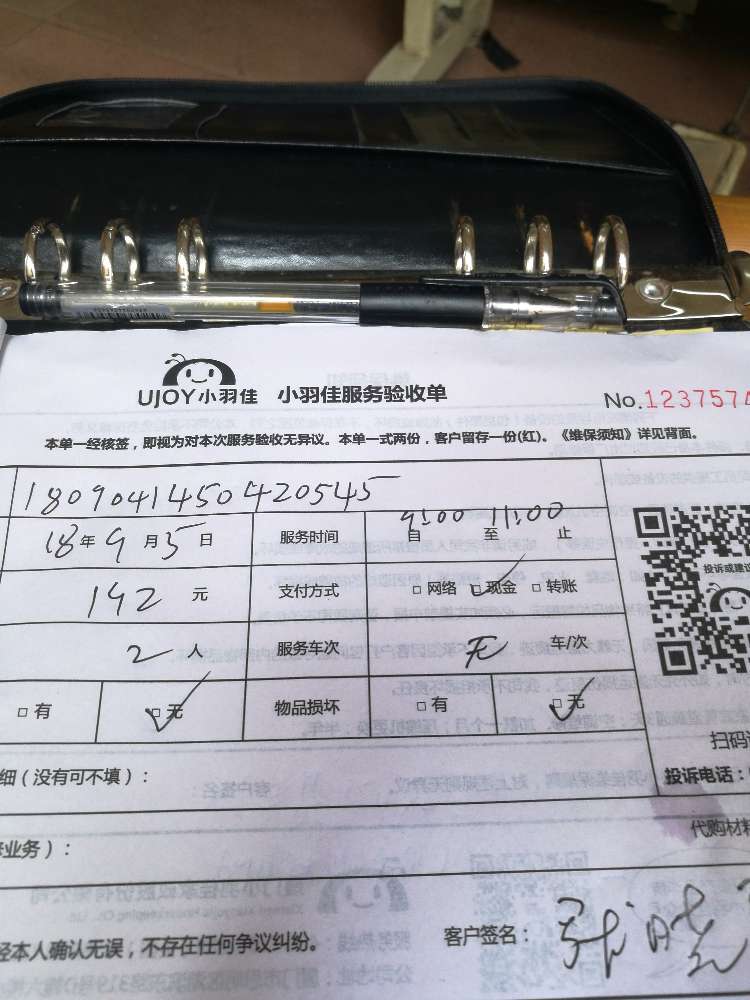 UJOY小羽佳 小羽佳服务验收单 No.1237574
本单一经核签，即视为对本次服务验收无异议。本单一式两份，客户留存一份(红)。《维保须知》详见背面。
1809041450420545
18年9月5日 服务时间 9:00 11:00 自 至 止
142 元 支付方式 □网络 □现金 □转账
2 人 服务车次 无 车/次
□有 □无 物品损坏 □有 □无
投诉或建议
扫码
细（没有可不填）： 投诉电话：
代购材料
业务）：
经本人确认无误，不存在任何争议纠纷。 客户签名：